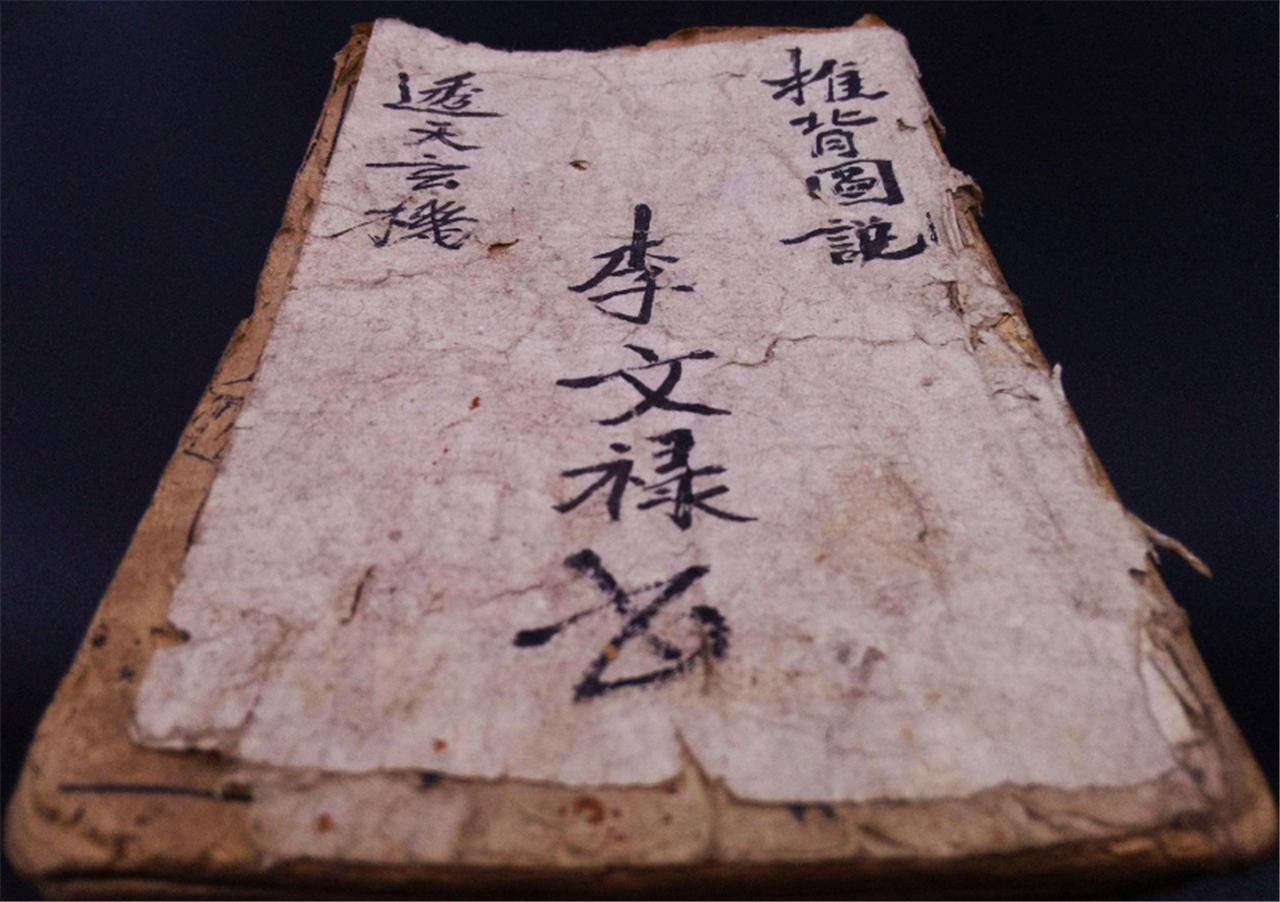 推背圖說
李文禄
透天玄機